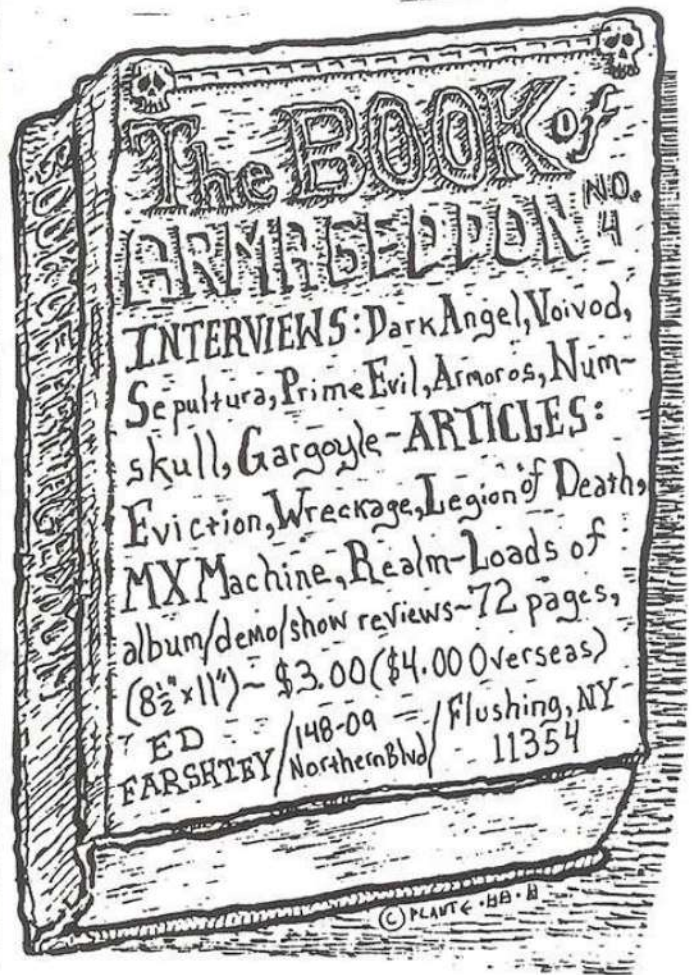 The BOOK of
ARMAGEDDON NO. 4
INTERVIEWS: Dark Angel, Voivod,
Sepultura, Prime Evil, Armoros, Num-
skull, Gargoyle - ARTICLES:
Eviction, Wreckage, Legion of Death,
MX Machine, Realm - Loads of
album/demo/show reviews ~ 72 pages,
(8½" x 11") ~ $3.00 ($4.00 Overseas)
ED FARSHTEY / 148-09 Northern Blvd / Flushing, NY 11354
© PLANTE